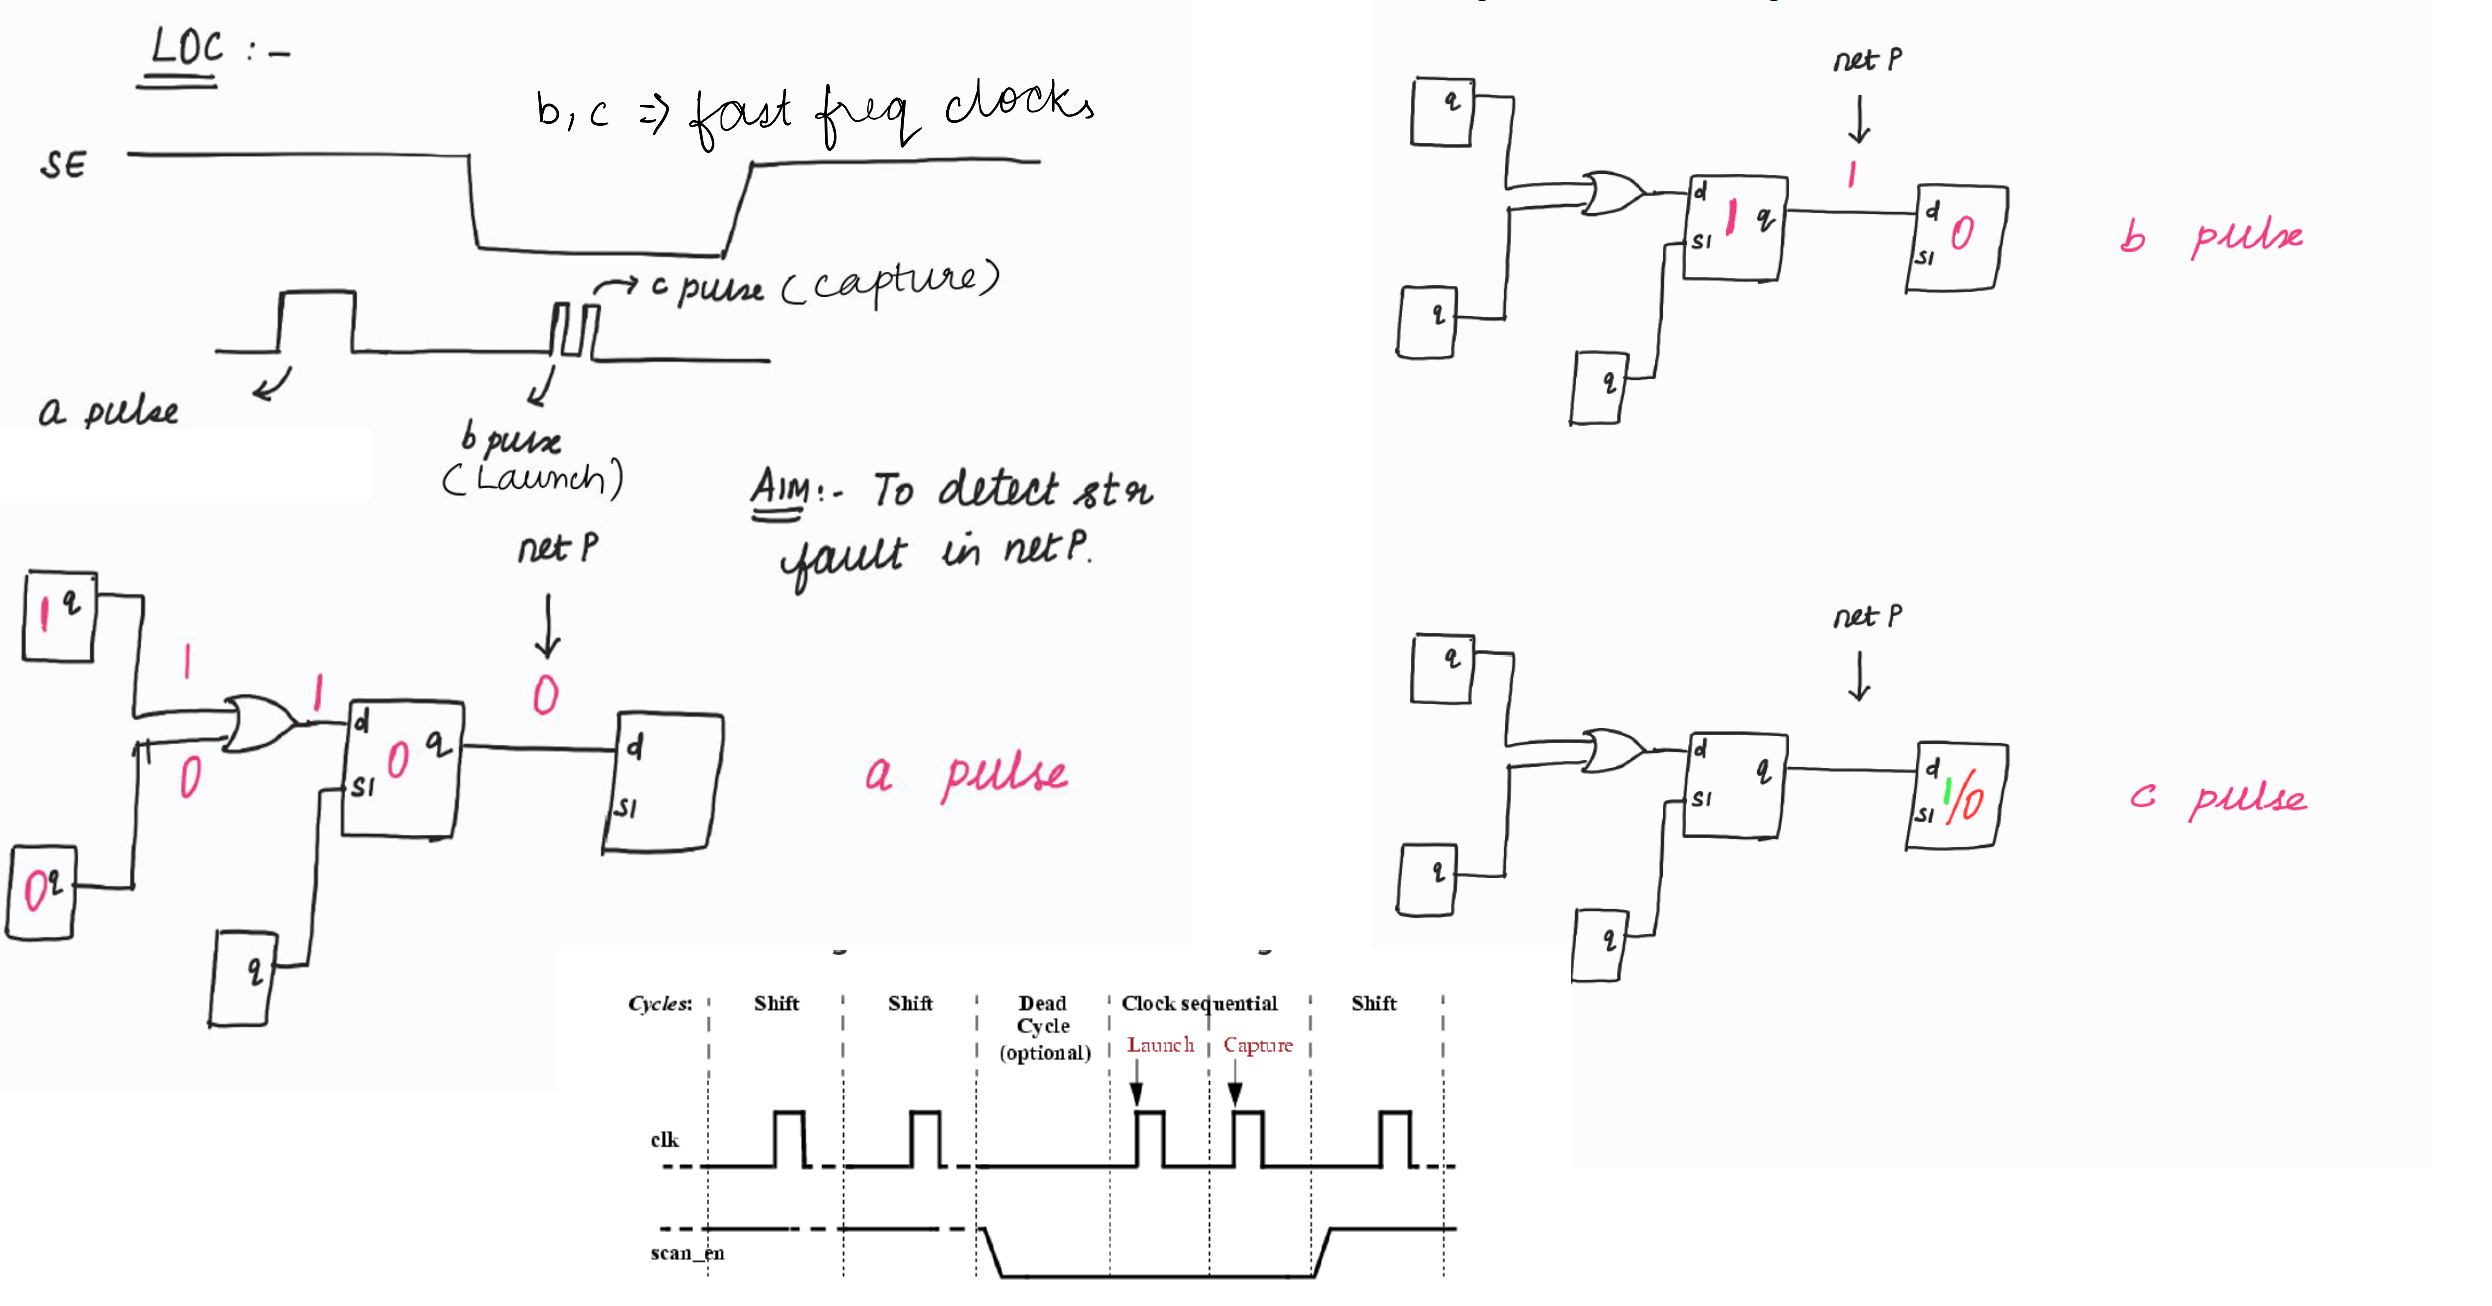 LOC :-
b, c => fast freq clocks
SE
c pulse (capture)
a pulse
b pulse
(Launch)
AIM:- To detect str
fault in net P.
net P
1 q
1
1
0
d
0 q
SI
d
SI
0
0q
q
a pulse
net P
1
q
d
1 q
SI
d
0
SI
q
q
b pulse
net P
q
d
q
SI
d
1/0
SI
q
q
c pulse
Cycles: Shift Shift Dead Cycle (optional) Clock sequential Shift
Launch Capture
clk
scan_en